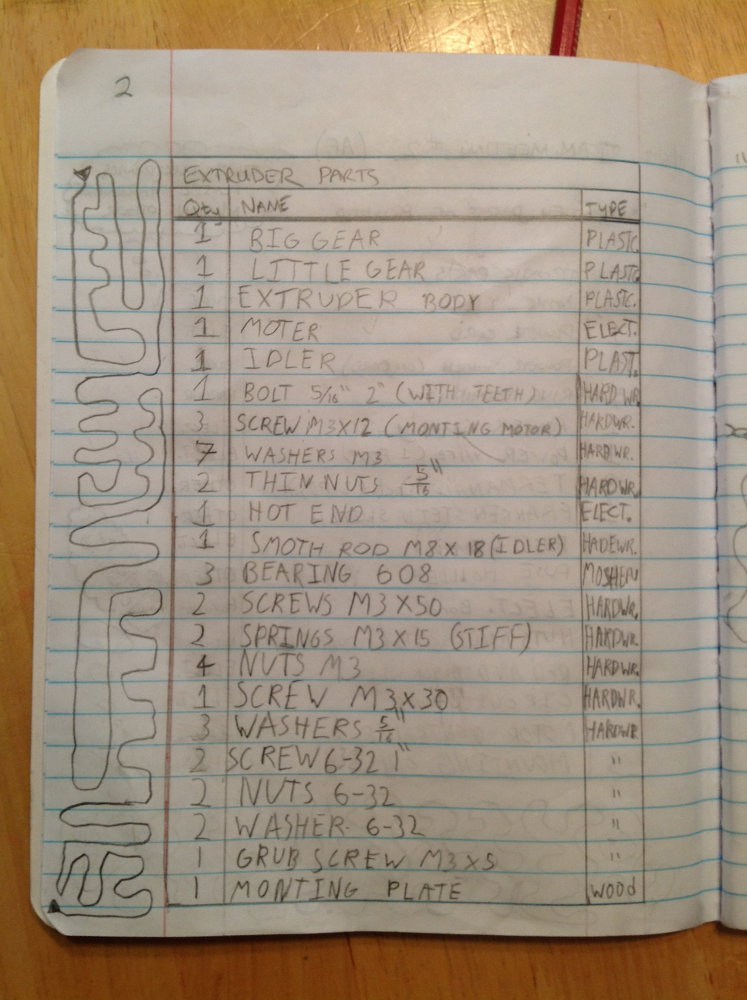 2
EXTRUDER PARTS
QTY NAME TYPE
1 BIG GEAR PLASTC
1 LITTLE GEAR PLASTC
1 EXTRUDER BODY PLASTIC.
1 MOTER ELECT.
1 IDLER PLAST.
1 BOLT 5/16" 2" (WITH TEETH) HARDWR.
3 SCREW M3X12 (MONTING MOTOR) HARDWR.
7 WASHERS M3 HARDWR.
2 THIN NUTS 5/16" HARDWR.
1 HOT END ELECT.
1 SMOTH ROD M8 X 18 (IDLER) HADEWR.
3 BEARING 608 MOSHEN
2 SCREWS M3 X50 HARDWR.
2 SPRINGS M3X15 (STIFF) HARDWR.
4 NUTS M3 HARDWR.
1 SCREW M3X30 HARDWR.
3 WASHERS 5/16" HARDWR
2 SCREW 6-32 1" "
2 NUTS 6-32 "
2 WASHER 6-32 "
1 GRUB SCREW M3X5 "
1 MONTING PLATE WOOD